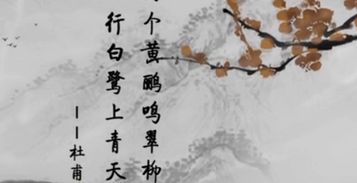 个黄鹂鸣翠柳
行白鹭上青天
——杜甫